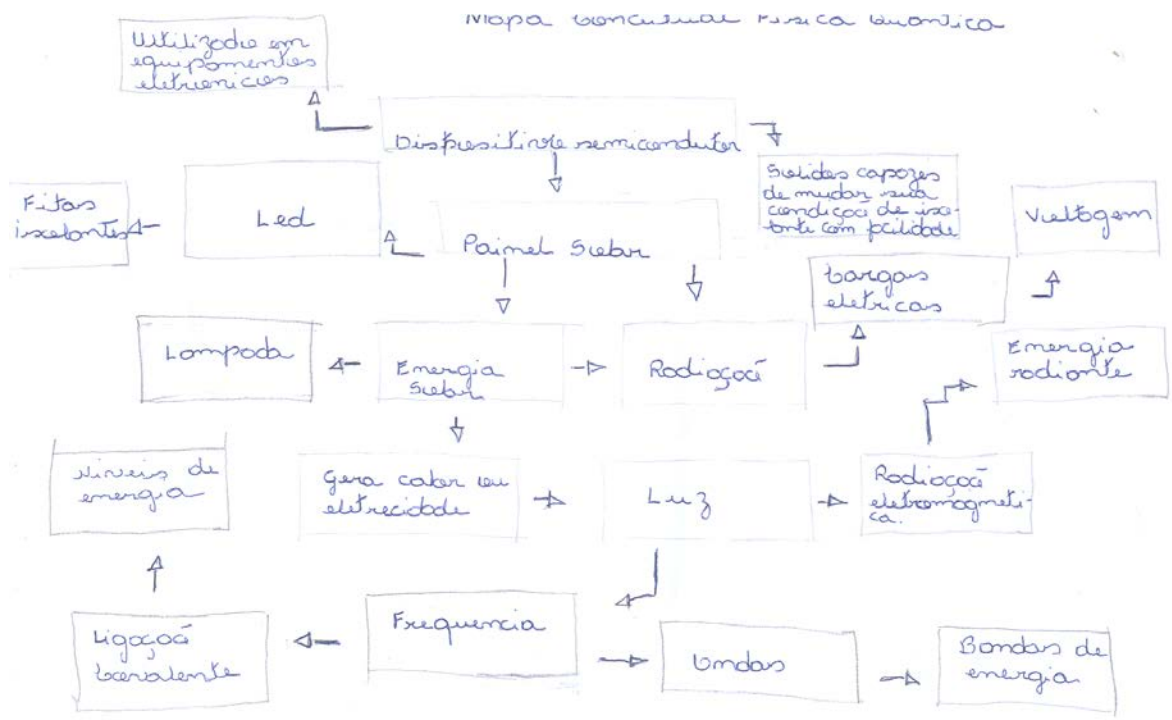 Mapa Conceitual Física Quantica
Utilizado em
equipamentos
eletronicos
Dispositivo semicondutor
Solidos capazes
de mudar sua
condição de iso-
lante com facilidade
Fitas
isolantes
Led
Painel Solar
Voltagem
Cargas
eletricas
Lampada
Energia
Solar
Radiaçoã
Energia
radiante
Niveis de
energia
Gera calor ou
eletrecidade
Luz
Radiaçoã
eletromagneti-
ca.
Ligaçoã
Covalente
Frequencia
Ondas
Bandas de
energia